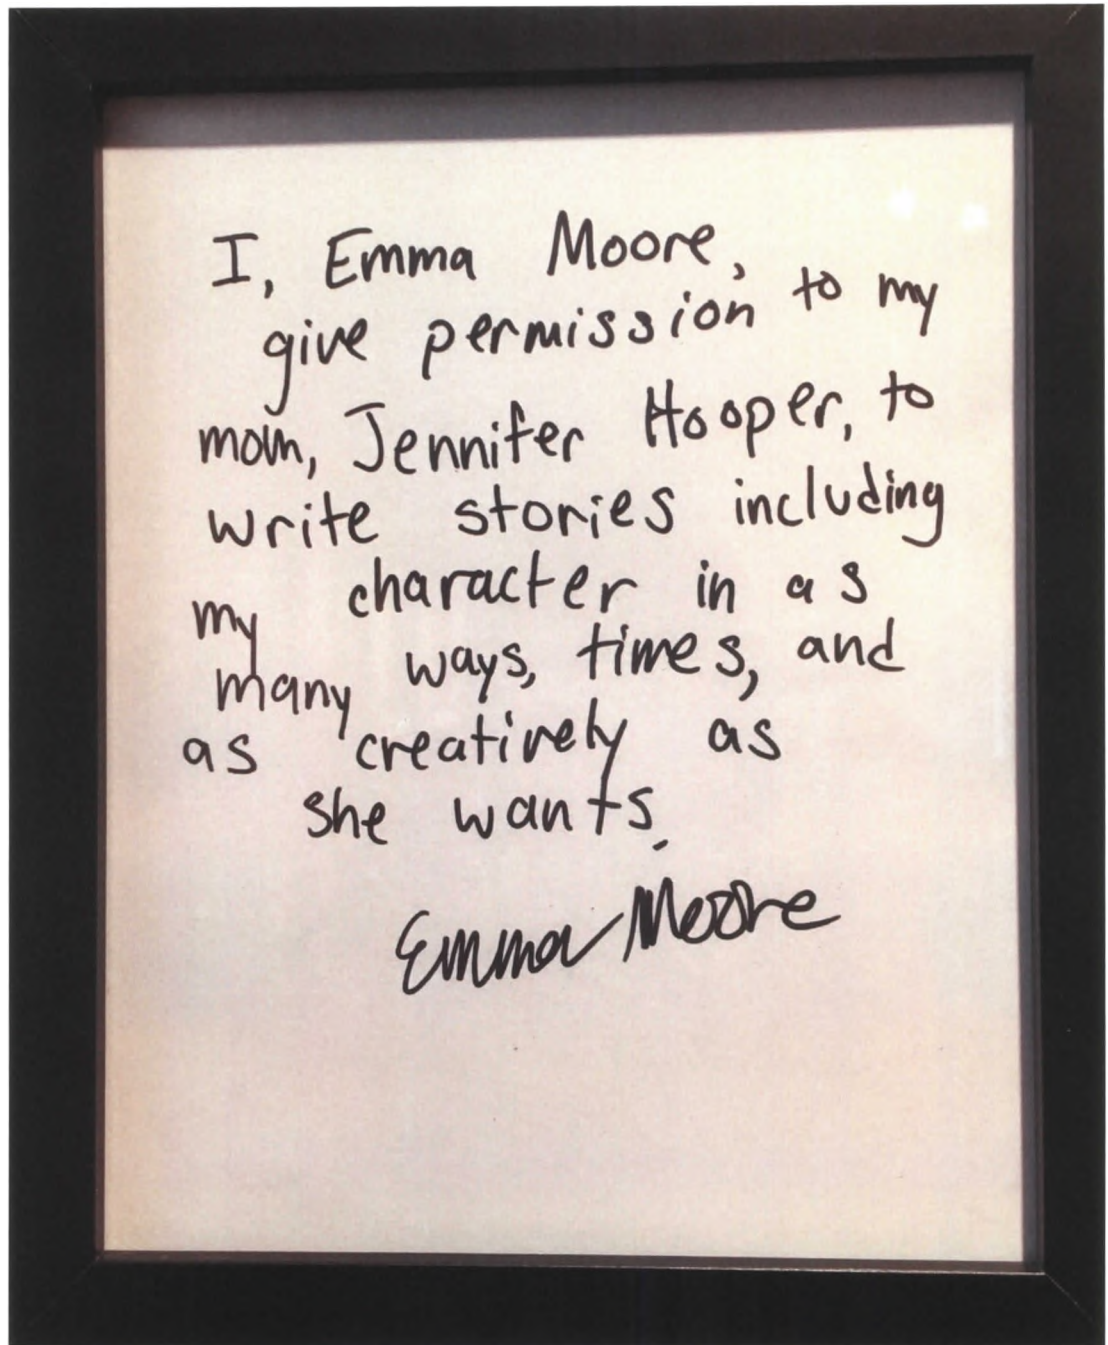 I, Emma Moore,
give permission to my
mom, Jennifer Hooper, to
write stories including
my character in as
many ways, times, and
as creatively as
she wants.
Emma Moore